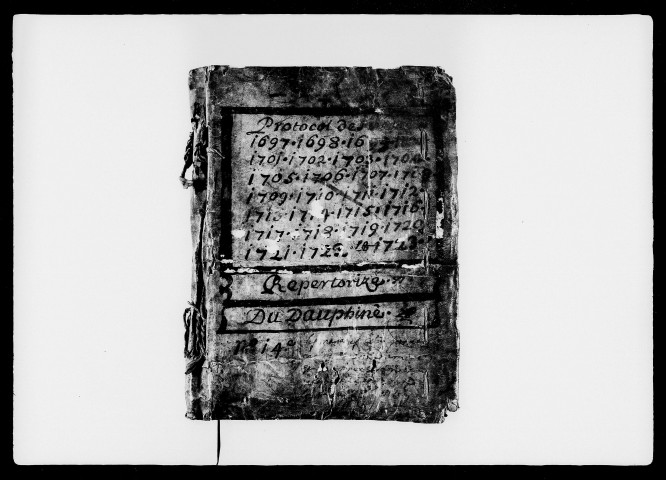 Protocol des
1697·1698·16
1701·1702·1703·1704
1705·1706·1707·1708
1709·1710·1711·1712
1713·1714·1715·1716
1717·1718·1719·1720
1721·1722· 1723
Repertorizé
Du Dauphiné·
N.º 14